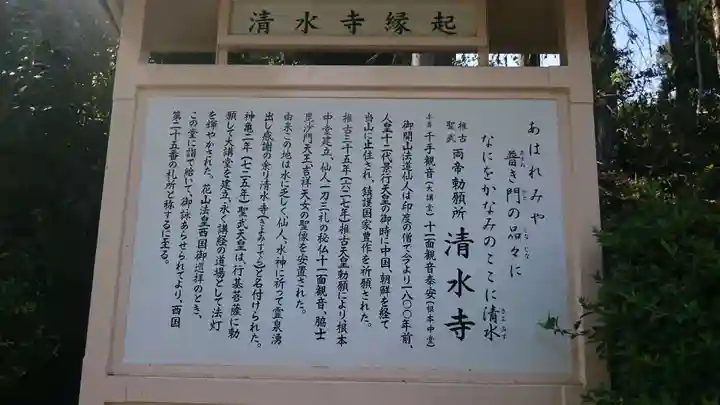 清水寺縁起
あはれみや
普き門の品々に
なにをかなみのここに清水
推古
聖武 両帝勅願所 清水寺
本尊 千手観音(大講堂)十一面観音奉安(根本中堂)
御開山法道仙人は印度の僧で今より一八〇〇年前、
人皇十二代景行天皇の御時に中国、朝鮮を経て
当山に止住され、鎮護国家豊作を祈願された。
推古三十五年(六二七年)推古天皇勅願により、根本
中堂建立、仙人一刀三礼の秘仏十一面観音、脇士
毘沙門天王、吉祥天女の聖像を安置された。
由来この地は水に乏しく、仙人、水神に祈って霊泉湧
出し感謝の余り清水寺(きよみずでら)と名付けられた。
神亀二年(七二五年)聖武天皇は、行基菩薩に勅
願して大講堂を建立、永く講経の道場として法灯
を輝やかされた。花山法皇西国御巡拝のとき、
この堂に詣で給いて、御詠あらせられてより、西国
第二十五番の札所と称するに至る。